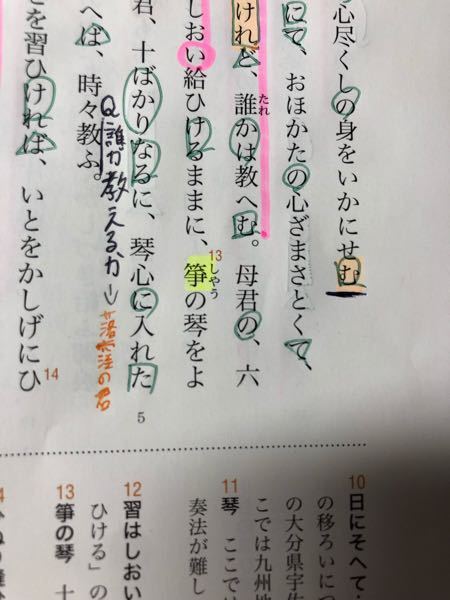 心尽くしの身をいかにせむ
にて、おほかたの心ざまさとくて、
けれど、誰かは教へむ。母君の、六
たれ
しおい給ひけるままに、箏の琴をよ
13
しやう
君、十ばかりなるに、琴心に入れた
へば、時々教ふ。
Q誰が教えるか→落窪の君
とを習ひければ、いとをかしげにひ
14
5
10 日にそへて
の移ろいにつ
の大分県宇佐
こでは九州地
11 琴 ここで
奏法が難し
12 習はしおい
ひける」の
13 箏の琴 十